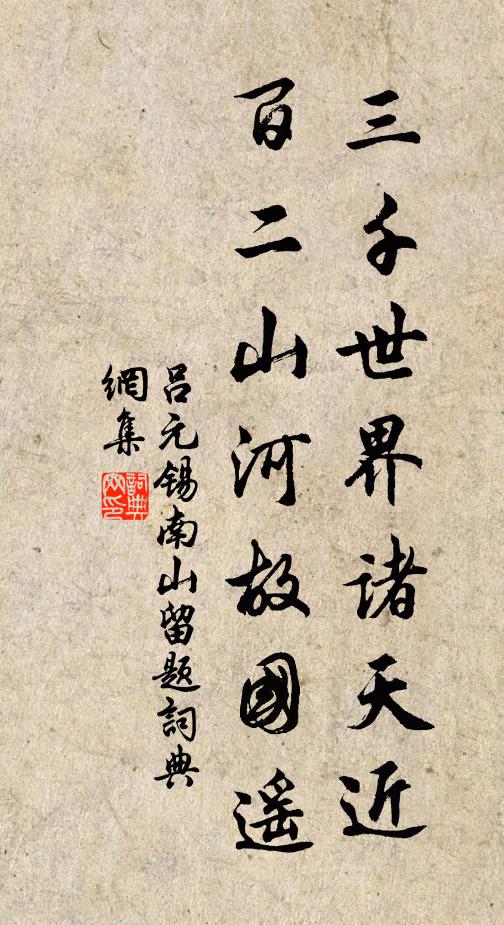 三千世界诸天近
百二山河故國遥
吕元锡南山留题詞典
網集
詞典網印